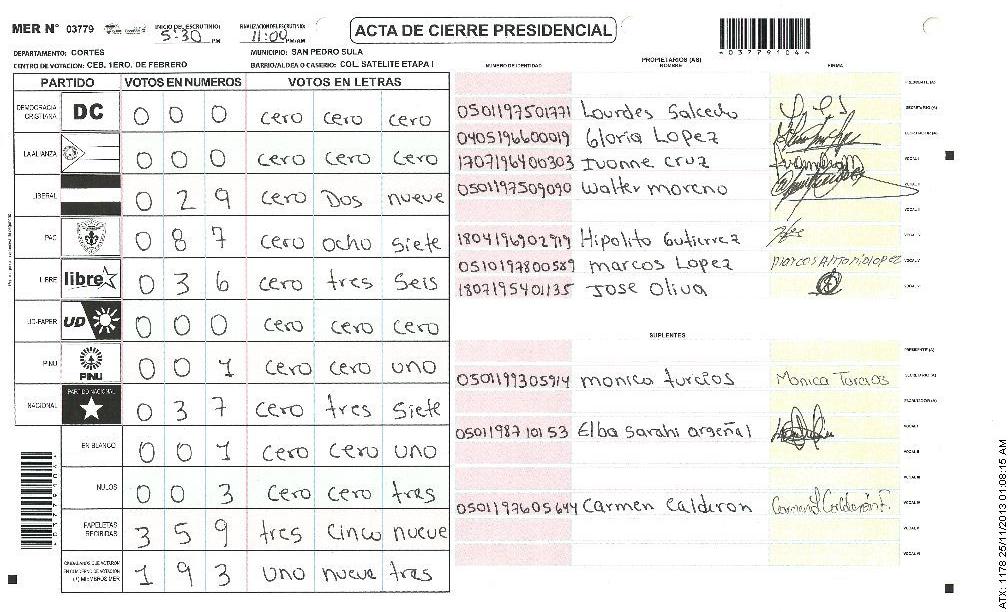 MER N° 03779
INICIO DEL ESCRUTINIO: 5:30 PM
FINALIZACION DEL ESCRUTINIO: 11:00 PM/AM
ACTA DE CIERRE PRESIDENCIAL
*03779104*
DEPARTAMENTO: CORTES
MUNICIPIO: SAN PEDRO SULA
CENTRO DE VOTACION: CEB. 1ERO. DE FEBRERO
BARRIO/ALDEA O CASERIO: COL. SATELITE ETAPA I
PARTIDO VOTOS EN NUMEROS VOTOS EN LETRAS
DEMOCRACIA CRISTIANA DC 0 0 0 cero cero cero
LA ALIANZA 0 0 0 cero cero cero
LIBERAL 0 2 9 cero Dos nueve
PAC 0 8 7 cero ocho siete
LIBRE libre 0 3 6 cero tres seis
UD-FAPER UD 0 0 0 cero cero cero
PINU PINU 0 0 1 cero cero uno
NACIONAL PARTIDO NACIONAL 0 3 7 cero tres siete
EN BLANCO 0 0 1 cero cero uno
NULOS 0 0 3 cero cero tres
PAPELETAS RECIBIDAS 3 5 9 tres cinco nueve
CIUDADANOS QUE VOTARON EN CUADERNO DE VOTACION (+) MIEMBROS MER 1 9 3 uno nueve tres
PROPIETARIOS (AS)
NUMERO DE IDENTIDAD NOMBRE FIRMA
PRESIDENTE (A)
0501197501771 Lourdes Salcedo SECRETARIO (A)
0405196600019 Gloria Lopez ESCRUTADOR (A)
1707196400303 Ivonne Cruz VOCAL I
0501197509090 Walter moreno VOCAL II
VOCAL III
1804196902919 Hipolito Gutierrez VOCAL IV
0510197800589 marcos Lopez Marcos Antonio Lopez VOCAL V
1807195401135 Jose Oliva VOCAL VI
SUPLENTES
PRESIDENTE (A)
0501199305914 monica turcios Monica Turcios SECRETARIO (A)
ESCRUTADOR (A)
0501198710153 Elba Sarahi argeñal VOCAL I
VOCAL II
VOCAL III
0501197605644 Carmen Calderon Carmen Calderón F. VOCAL IV
VOCAL V
VOCAL VI
ATX: 1178 25/11/2013 01:08:15 AM